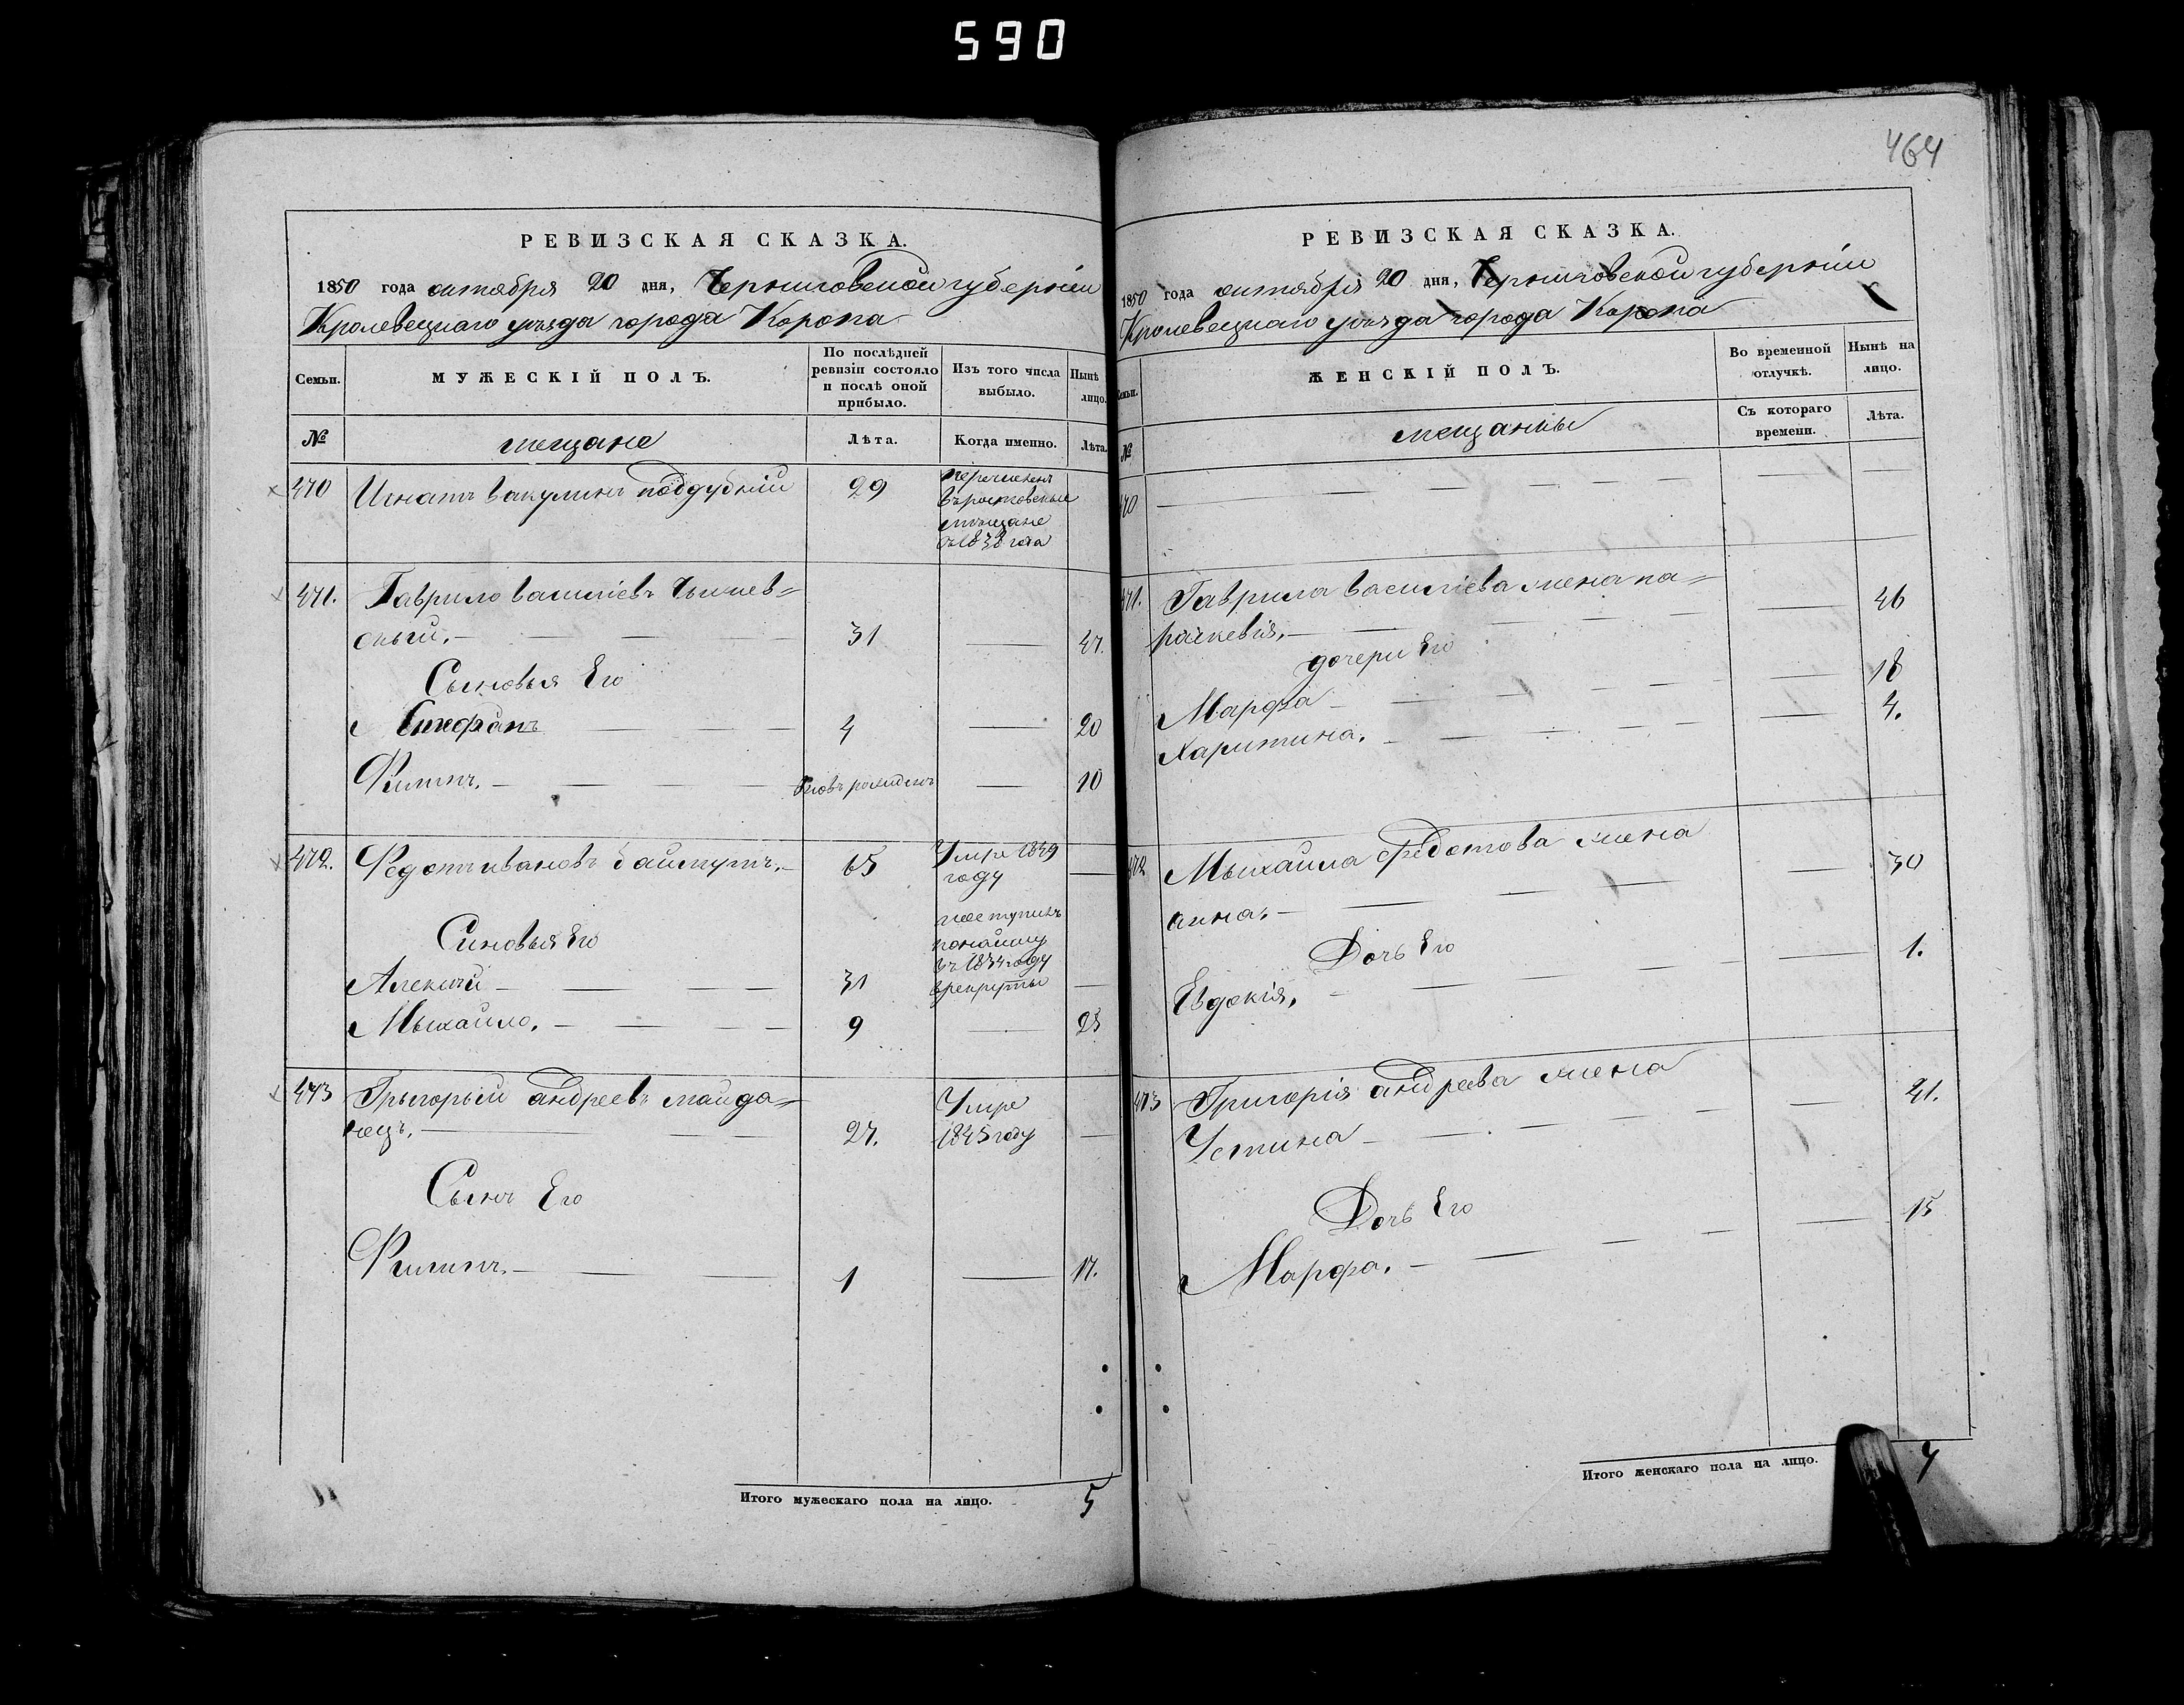 590
464
РЕВИЗСКАЯ СКАЗКА.
1850 года октября 20 дня, Черниговской губерніи
Кролевецкаго уѣзда города Коропа
Семьи.
МУЖЕСКІЙ ПОЛЪ.
По послѣдней ревизіи состояло и послѣ оной прибыло.
Изъ того числа выбыло.
Нынѣ лицо.
№
мещане
Лѣта.
Когда именно.
Лѣта.
470 Игнатъ вакулинъ поддубній 29
перечислен
въ ростовскые
мещане
съ 1838 года
471. Гаврило василіевъ
скый. — 31 — 47.
Сыновья Его
Стефанъ — 4 — 20
Филипъ. — вновь рожденъ — 10
472. Федотъ ивановъ 65 Умре 1849
году —
Синовья Его
поступилъ
понайму
въ 1834 году
врекруты
Алексѣй — 31 —
Мыхайло. — 9 — 25
473 Грыгорый андреевъ майда=
нецъ. — 27. Умре
1845 году —
Сынъ Его
Филипъ. — 1 — 17.
Итого мужескаго пола на лицо. 5
РЕВИЗСКАЯ СКАЗКА.
1850 года октября 20 дня, Черниговской губерніи
Кролевецкаго уѣзда города Коропа
Семьи.
ЖЕНСКІЙ ПОЛЪ.
Во временной отлучкѣ.
Нынѣ на лицо.
№
мещанкы
Съ котораго времени.
Лѣта.
470 —
471. Гаврила василіева жена па=
раскевія. — 46
дочери Его
Марфа — 18
Харитина. — 4.
472 Мыхайла федотова жена
анна. — 30
Дочь Его
Евдокія. — 1.
473 Григорія андреева жена
Устина — 41.
Дочь Его
Марфа. — 15
Итого женскаго пола на лицо. 7